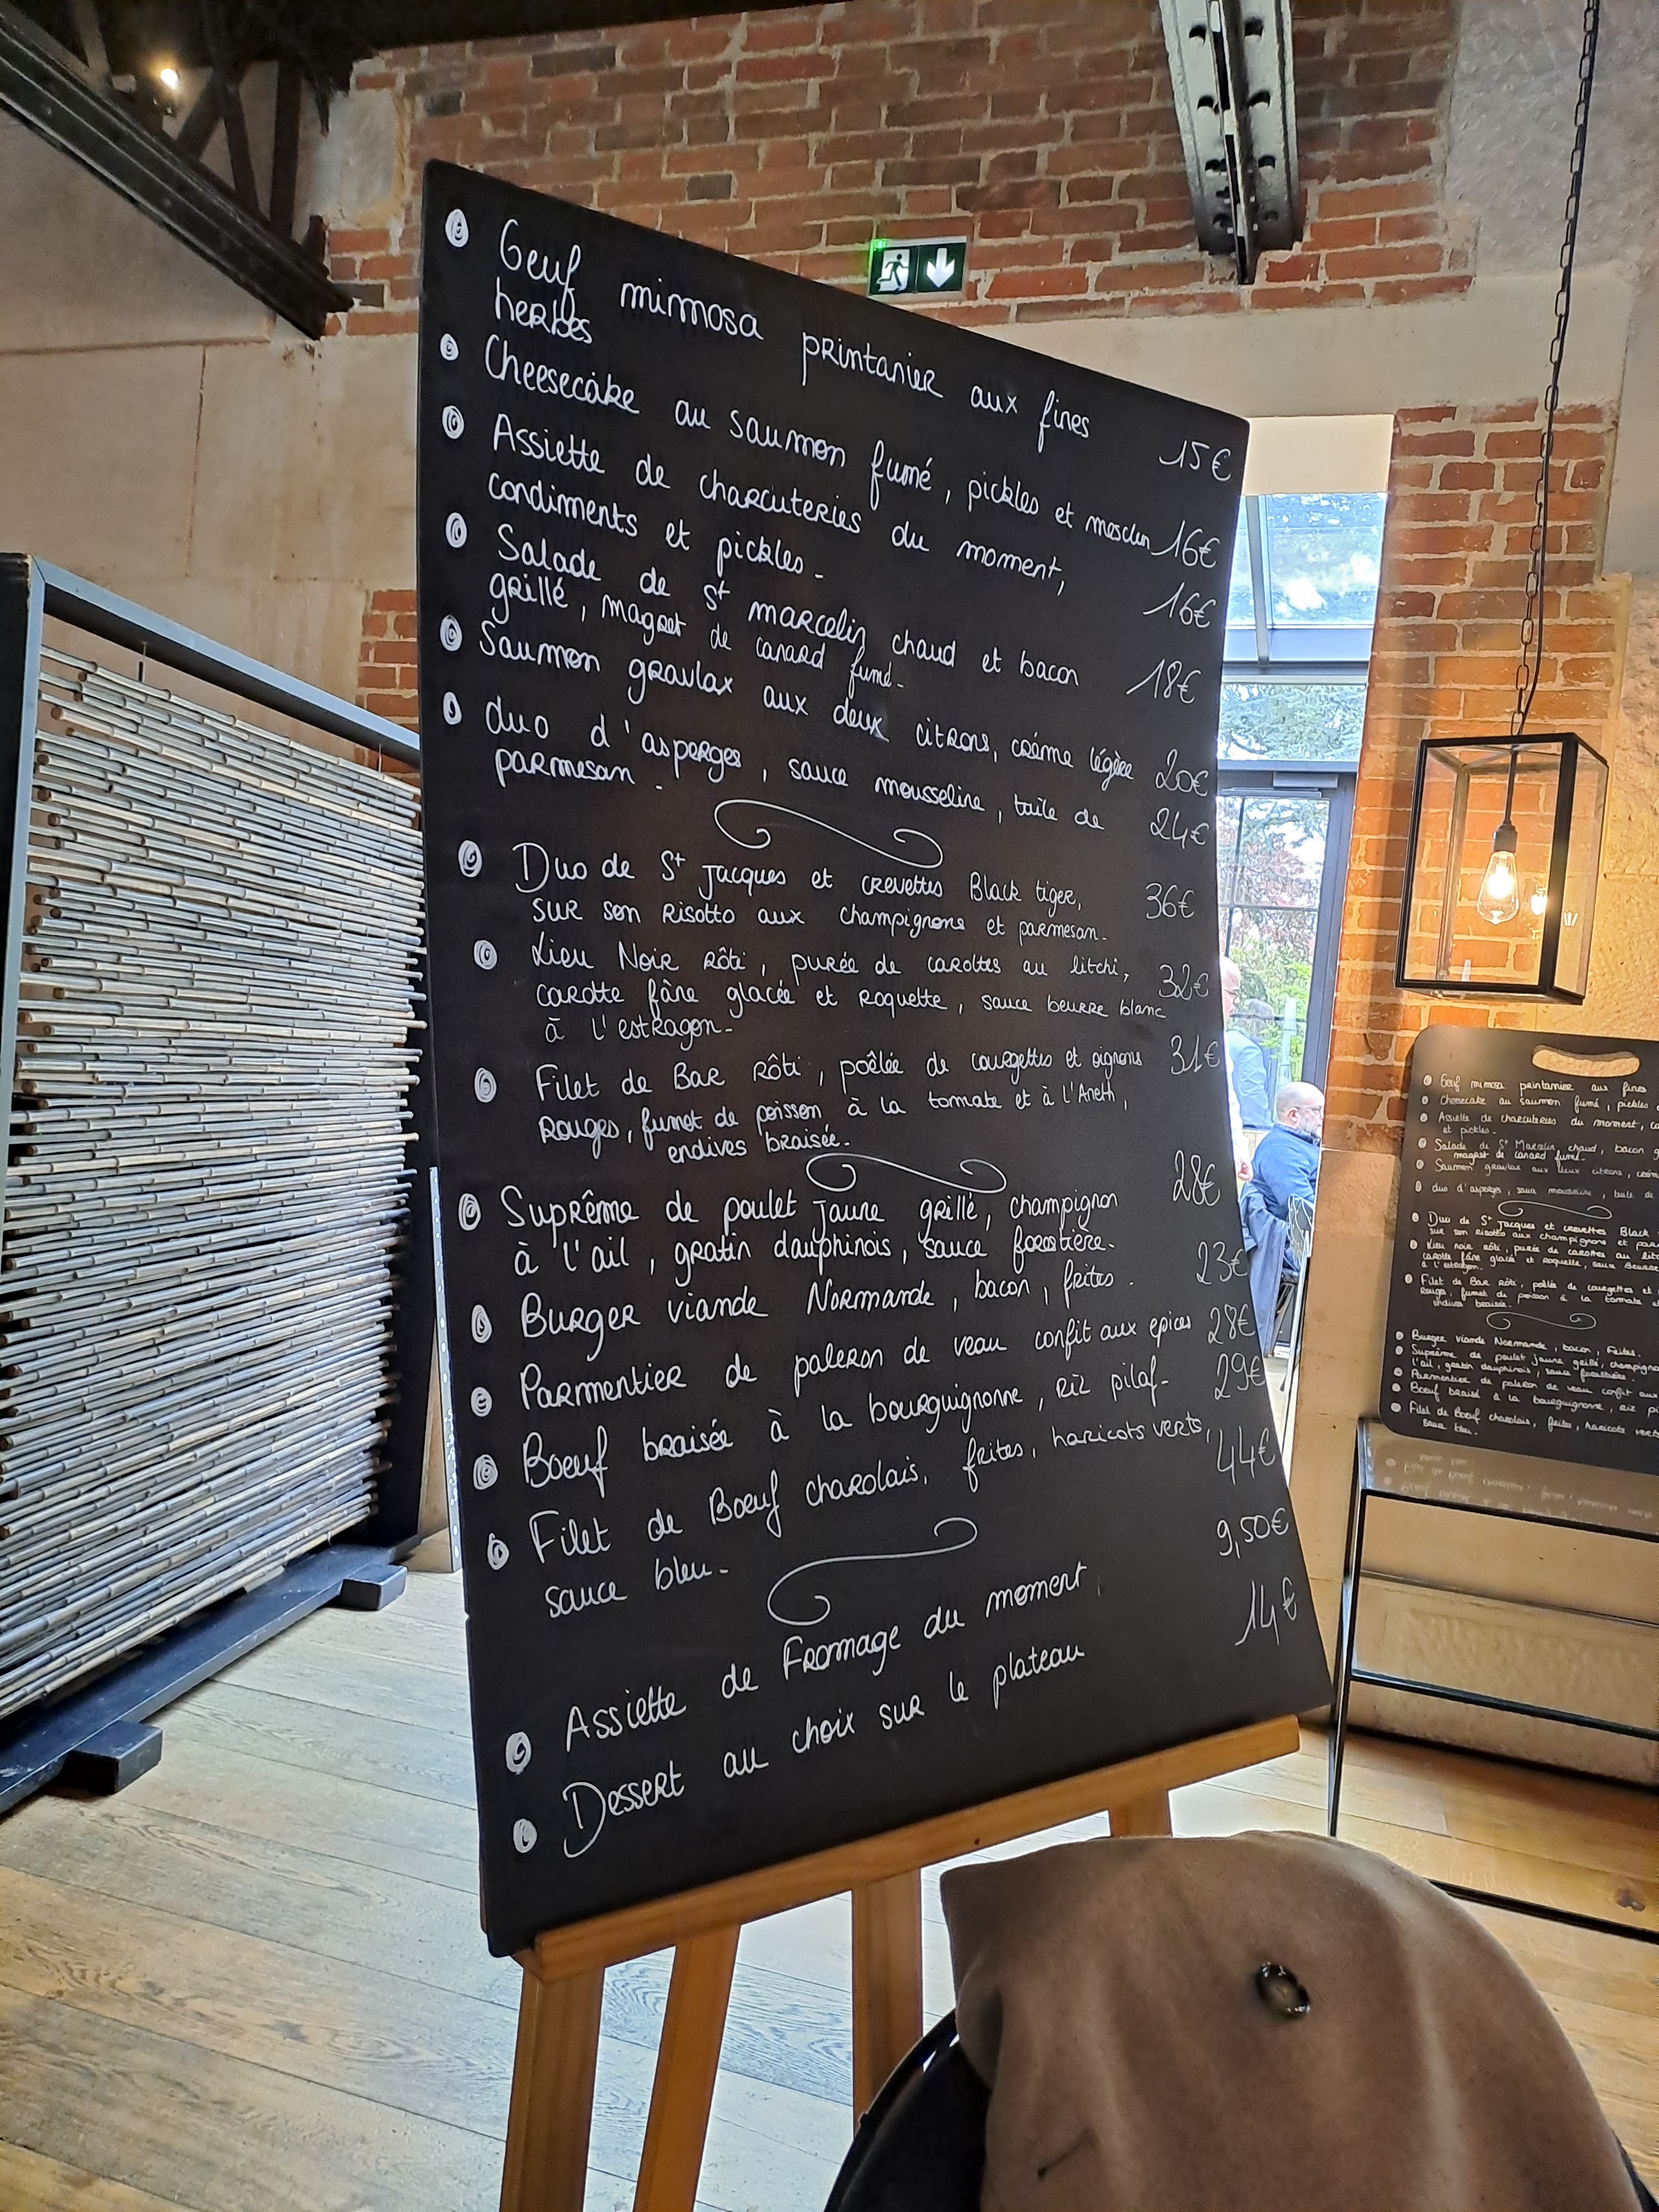 Oeuf mimosa printanier aux fines
herbes 15€
Cheesecake au saumon fumé, pickles et mesclun 16€
Assiette de charcuteries du moment,
condiments et pickles. 16€
Salade de St marcelin chaud et bacon 18€
grillé, magret de canard fumé.
Saumon gravlax aux deux citrons, crème légère 20€
duo d'asperges, sauce mousseline, tuile de 24€
parmesan.
Duo de St Jacques et crevettes Black tiger, 36€
sur son risotto aux champignons et parmesan.
Lieu Noir rôti, purée de carottes au litchi, 32€
carotte fâne glacée et roquette, sauce beurre blanc
à l'estragon.
Filet de Bar rôti, poêlée de courgettes et oignons 31€
rouges, fumet de poisson à la tomate et à l'Aneth,
endives braisée.
Suprême de poulet jaune grillé, champignon 28€
à l'ail, gratin dauphinois, sauce forestière.
Burger viande Normande, bacon, frites. 23€
Parmentier de paleron de veau confit aux epices 28€
Boeuf braisée à la bourguignonne, riz pilaf. 29€
Filet de Boeuf charolais, frites, haricots verts, 44€
sauce bleu.
Assiette de Fromage du moment, 9,50€
Dessert au choix sur le plateau 14€
Oeuf mimosa printanier aux fines
Cheesecake au saumon fumé, pickles
Assiette de charcuteries du moment,
et pickles.
Salade de St Marcelin chaud, bacon
magret de canard fumé.
Saumon gravlax aux deux citrons,
duo d'asperges, sauce mousseline, tuile de
Duo de St Jacques et crevettes Black
sur son risotto aux champignons et
Lieu noir rôti, purée de carottes au
carotte fâne glacée et roquette, sauce Beurre
à l'estragon.
Filet de Bar rôti, poêlée de courgettes et
Rouges, fumet de poisson à la tomate et
endives braisée.
Burger viande Normande, bacon, Frites.
Suprême de poulet jaune grillé,
l'ail, gratin dauphinois, sauce forestière.
Parmentier de paleron de veau confit aux
Boeuf braisé à la bourguignonne, riz
Filet de Boeuf charolais, frites, haricots verts
sauce bleu.